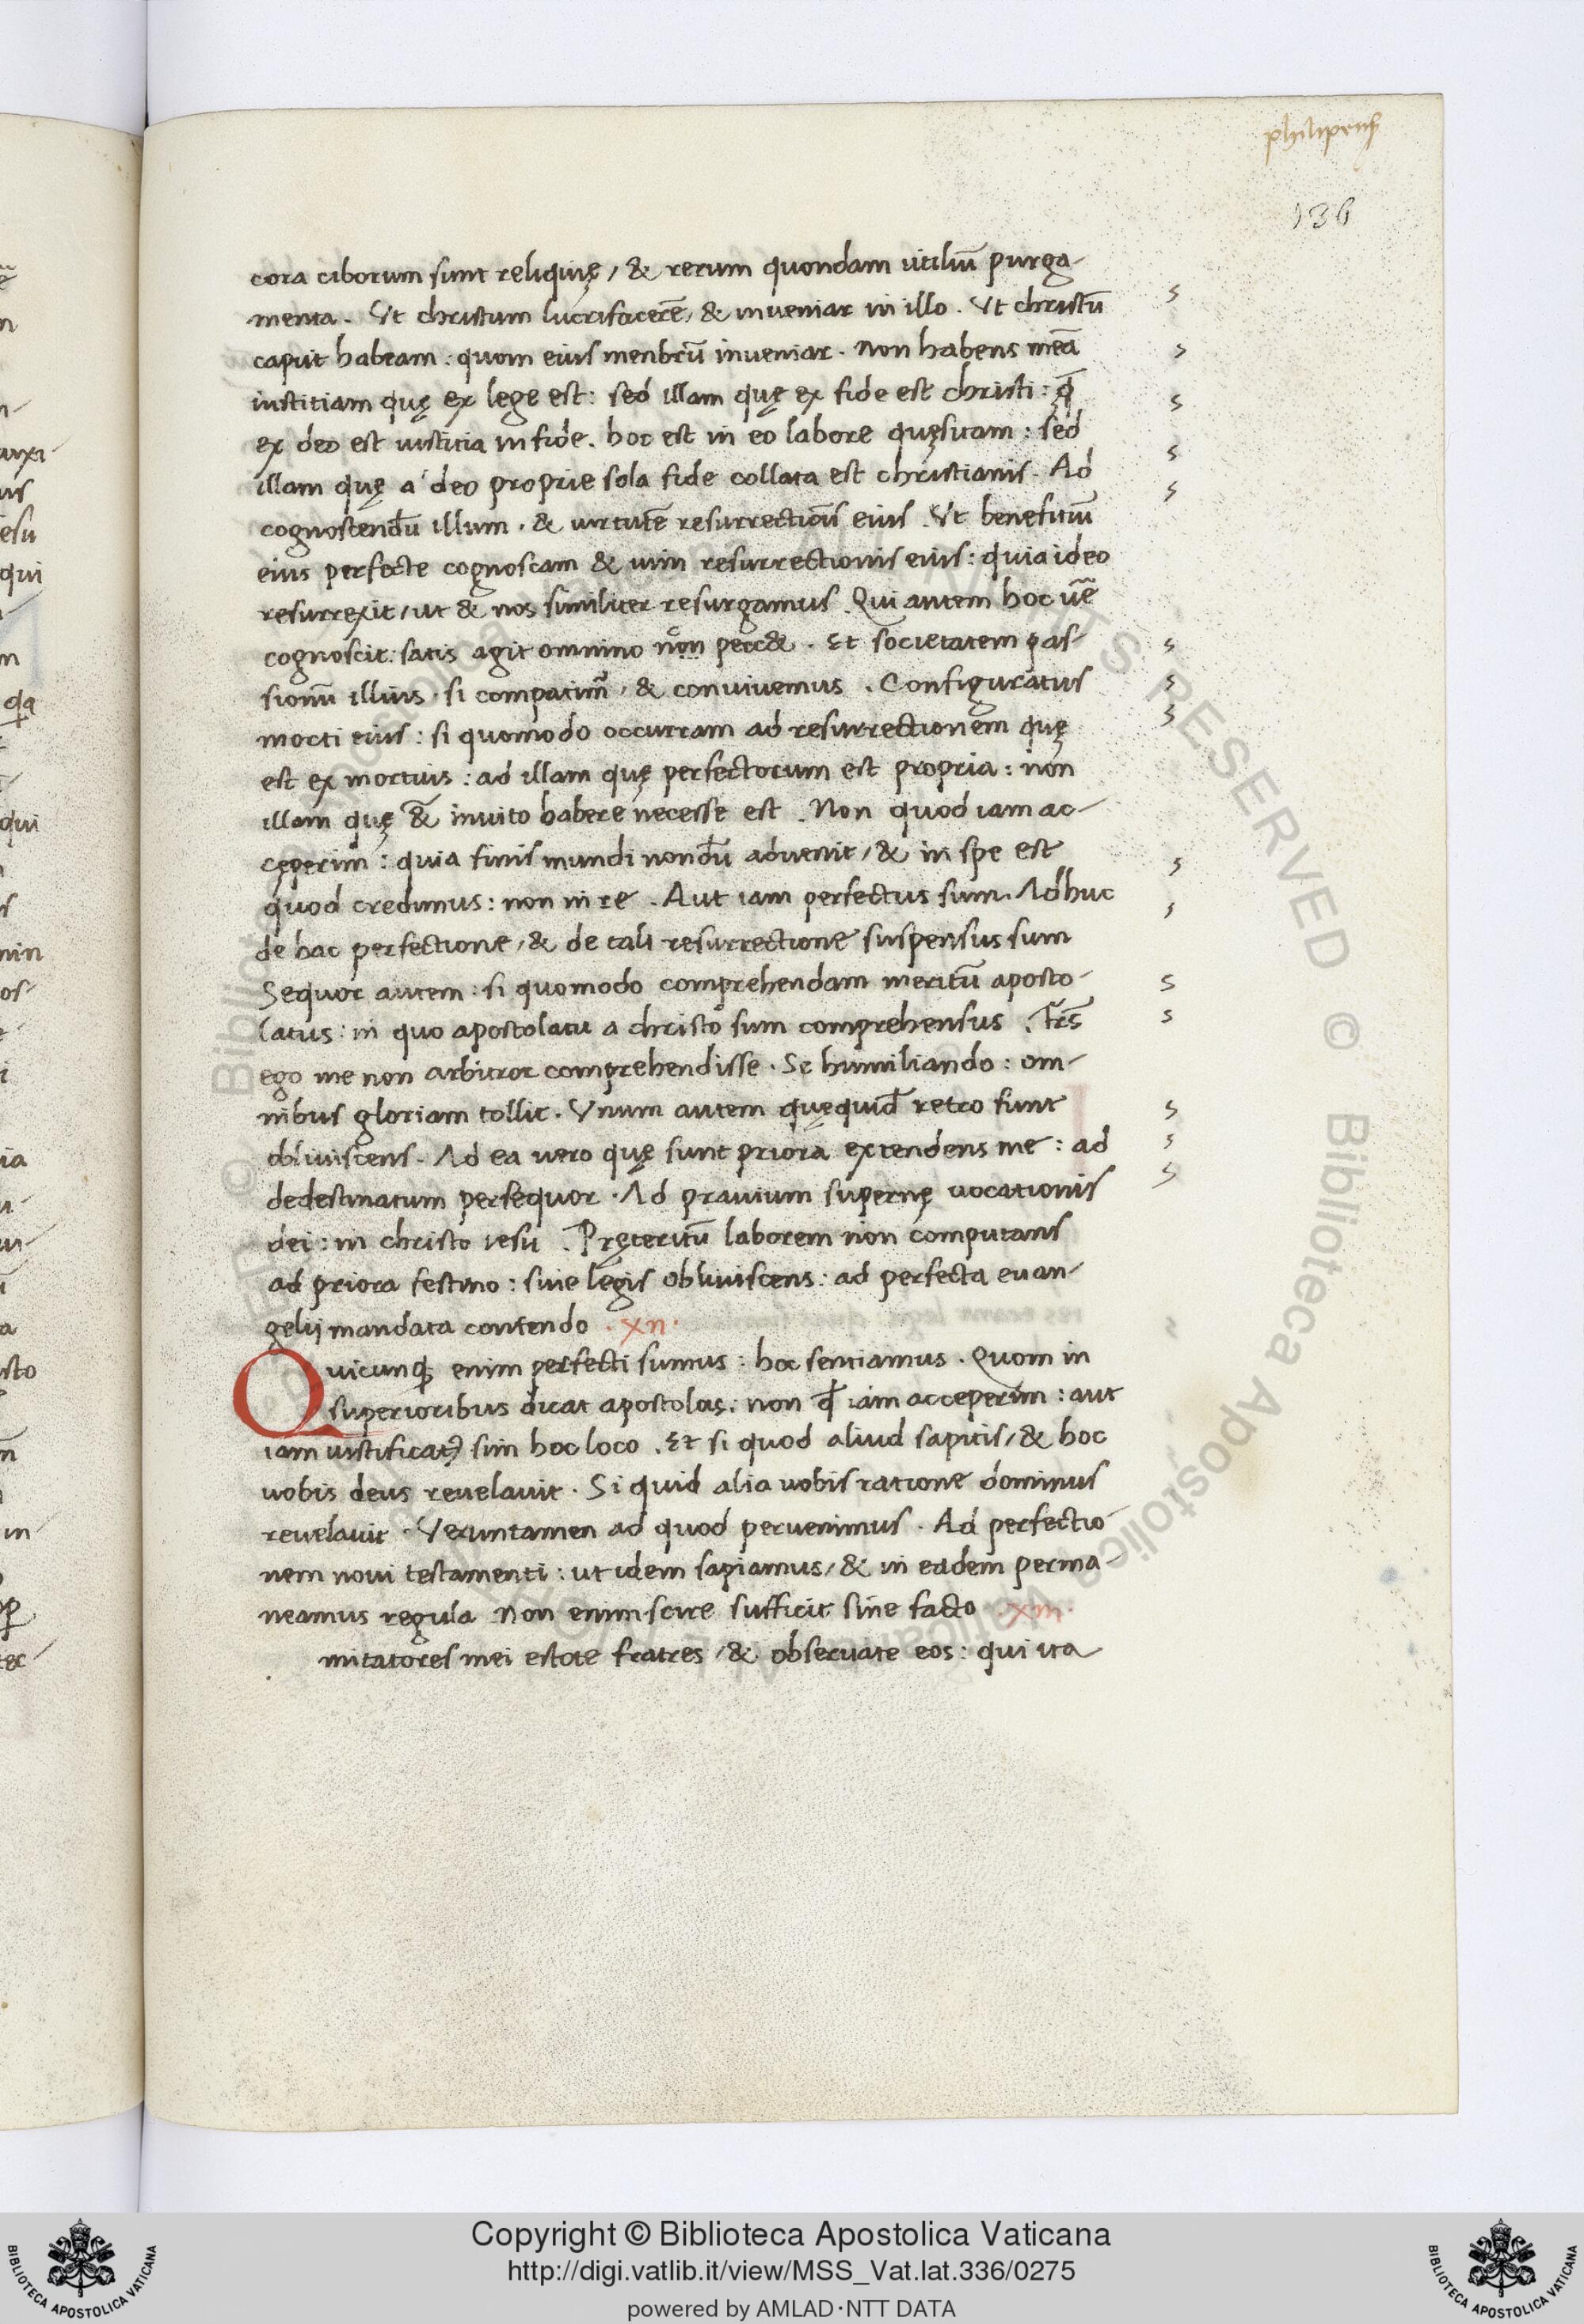 philipens
136
cora ciborum sunt reliquię / & rerum quondam utiliū purga-
menta. Ut christum lucrifacerē, & inueniar in illo. Ut christū
caput habeam: quom eius menbrū inueniar. Non habens meā
iustitiam quę ex lege est: sed illam quę ex fide est christi: q̄
ex deo est iusticia in fide. hoc est in eo labore quęsitam: sed
illam quę a deo proprie sola fide collata est christianis. Ad
cognoscendū illum. & uirtutē resurrectiōis eius. Ut benefitiū
eius perfecte cognoscam & uim resurrectionis eius: quia ideo
resurrexit / ut & nos similiter resurgamus. Qui autem hoc uē
cognoscit: satis agit omnino non pecc&. Et societatem pas-
sionū illius. si compatimr̄, & conuiuemus. Configuratus
morti eius: si quomodo occurram ad resurrectionem quę
est ex mortuis: ad illam quę perfectorum est propria: non
illam quę & inuito habere necesse est. Non quod iam ac-
cęperim: quia finis mundi nondū aduenit / & in spe est
quod credimus: non in re. Aut iam perfectus sum. Adhuc
de hac perfectione / & de tali resurrectione suspensus sum
Sequor autem: si quomodo comprehendam meritū aposto-
latus: in quo apostolatu a christo sum comprehensus. Frēs
ego me non arbitror comprehendisse. Se humiliando: om-
nibus gloriam tollit. Vnum autem quęquid retro sunt
obliuiscens. Ad ea uero quę sunt priora extendens me: ad
dedestinatum persequor. Ad prauium supernę uocationis
dei: in christo iesu. Pręteritū laborem non computans
ad priora festino: siue legis obliuiscens: ad perfecta euan-
gelii mandata contendo. xii.
Quicunq; enim perfecti sumus: hoc sentiamus. Quom in
superioribus dicat apostolus: non qd iam acceperim: aut
iam iustificatꝰ sim hoc loco. Et si quod aliud sapitis / & hoc
uobis deus reuelauit. Si quid alia uobis ratione dominus
reuelauit. Veruntamen ad quod peruenimus. Ad perfectio
nem noui testamenti: ut idem sapiamus / & in eadem perma-
neamus regula Non enim scire sufficit sine facto. xiii.
mitatores mei estote fratres / & obseruate eos: qui ita
Copyright © Biblioteca Apostolica Vaticana
http://digi.vatlib.it/view/MSS_Vat.lat.336/0275
powered by AMLAD·NTT DATA